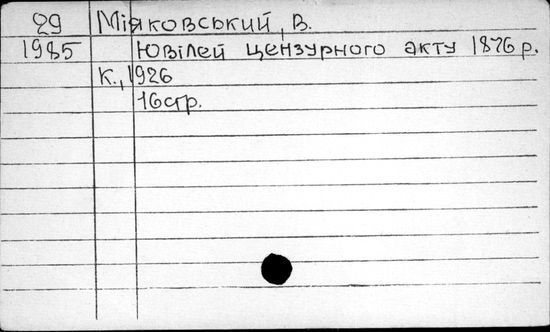 29 Міяковський, В.
1985 Ювілей цензурного акту 1876 р.
К., 1926
16стр.